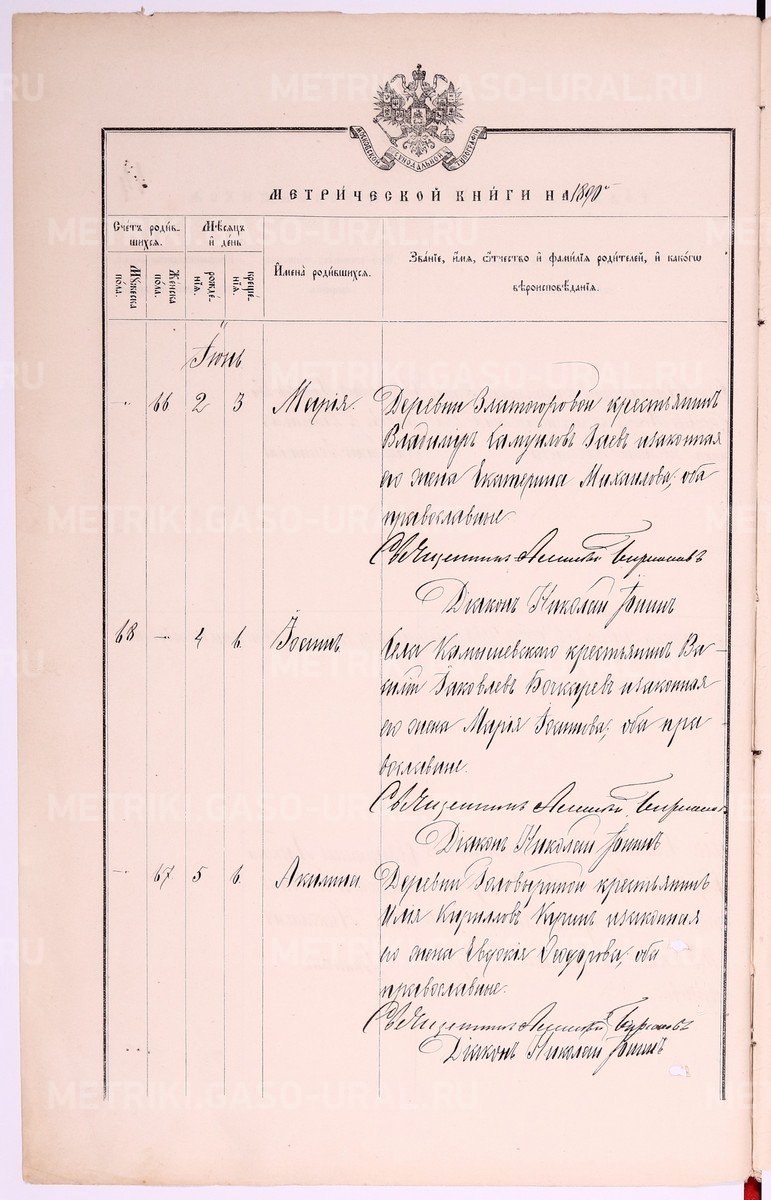 METRIKI.GASO-URAL.RU
МОСКОВСКОЙ СѴНОДАЛЬНОЙ ТИПОГРАФІИ
МЕТРИ́ЧЕСКОЙ КНИ́ГИ НА 1890 г
Сче́тъ роди́в-
шихся.
Му́жеска
по́ла.
Же́нска
по́ла.
Мѣ́сяцъ
и́ де́нь
рожде́-
нія.
креще́-
нія.
И́мена̀ роди́вшихся.
Зва́ніе, и́мя, ѻ҆́тчество и҆ фами́лія роди́телей, и҆ како́гѡ
вѣроисповѣ́данія.
Іюнь
„ 66 2 3 Марія. Деревни Златогоровой крестьянинъ
Владиміръ Самуиловъ Заевъ и законная
его жена Екатерина Михаилова; оба
православные
Священникъ
Діаконъ Николай Іонинъ
68 — 4 6. Іосифъ. Села Камышевскаго крестьянинъ Ва-
силій Іаковлевъ Бочкаревъ и законная
его жена Марія Іосифова; оба пра
вославные.
Священникъ
Діаконъ Николай Іонинъ
— 67 5 6. Акилина. Деревни Головыриной крестьянинъ
Илія Кирилловъ Куринъ и законная
его жена Евдокія Ѳеодорова; оба
православные.
Священникъ
Діаконъ Николай Іонинъ